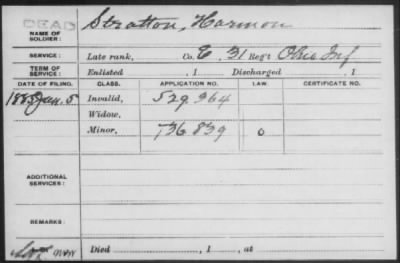 DEAD
NAME OF SOLDIER: Stratton, Harmon
SERVICE: Late rank, Co. E, 31 Reg't Ohio Inf
TERM OF SERVICE: Enlisted , 1 Discharged , 1
DATE OF FILING. CLASS. APPLICATION NO. LAW. CERTIFICATE NO.
Jan. 5 Invalid, 529.964
Widow,
Minor, 736.839 0
ADDITIONAL SERVICES:
REMARKS:
Died , 1 , at